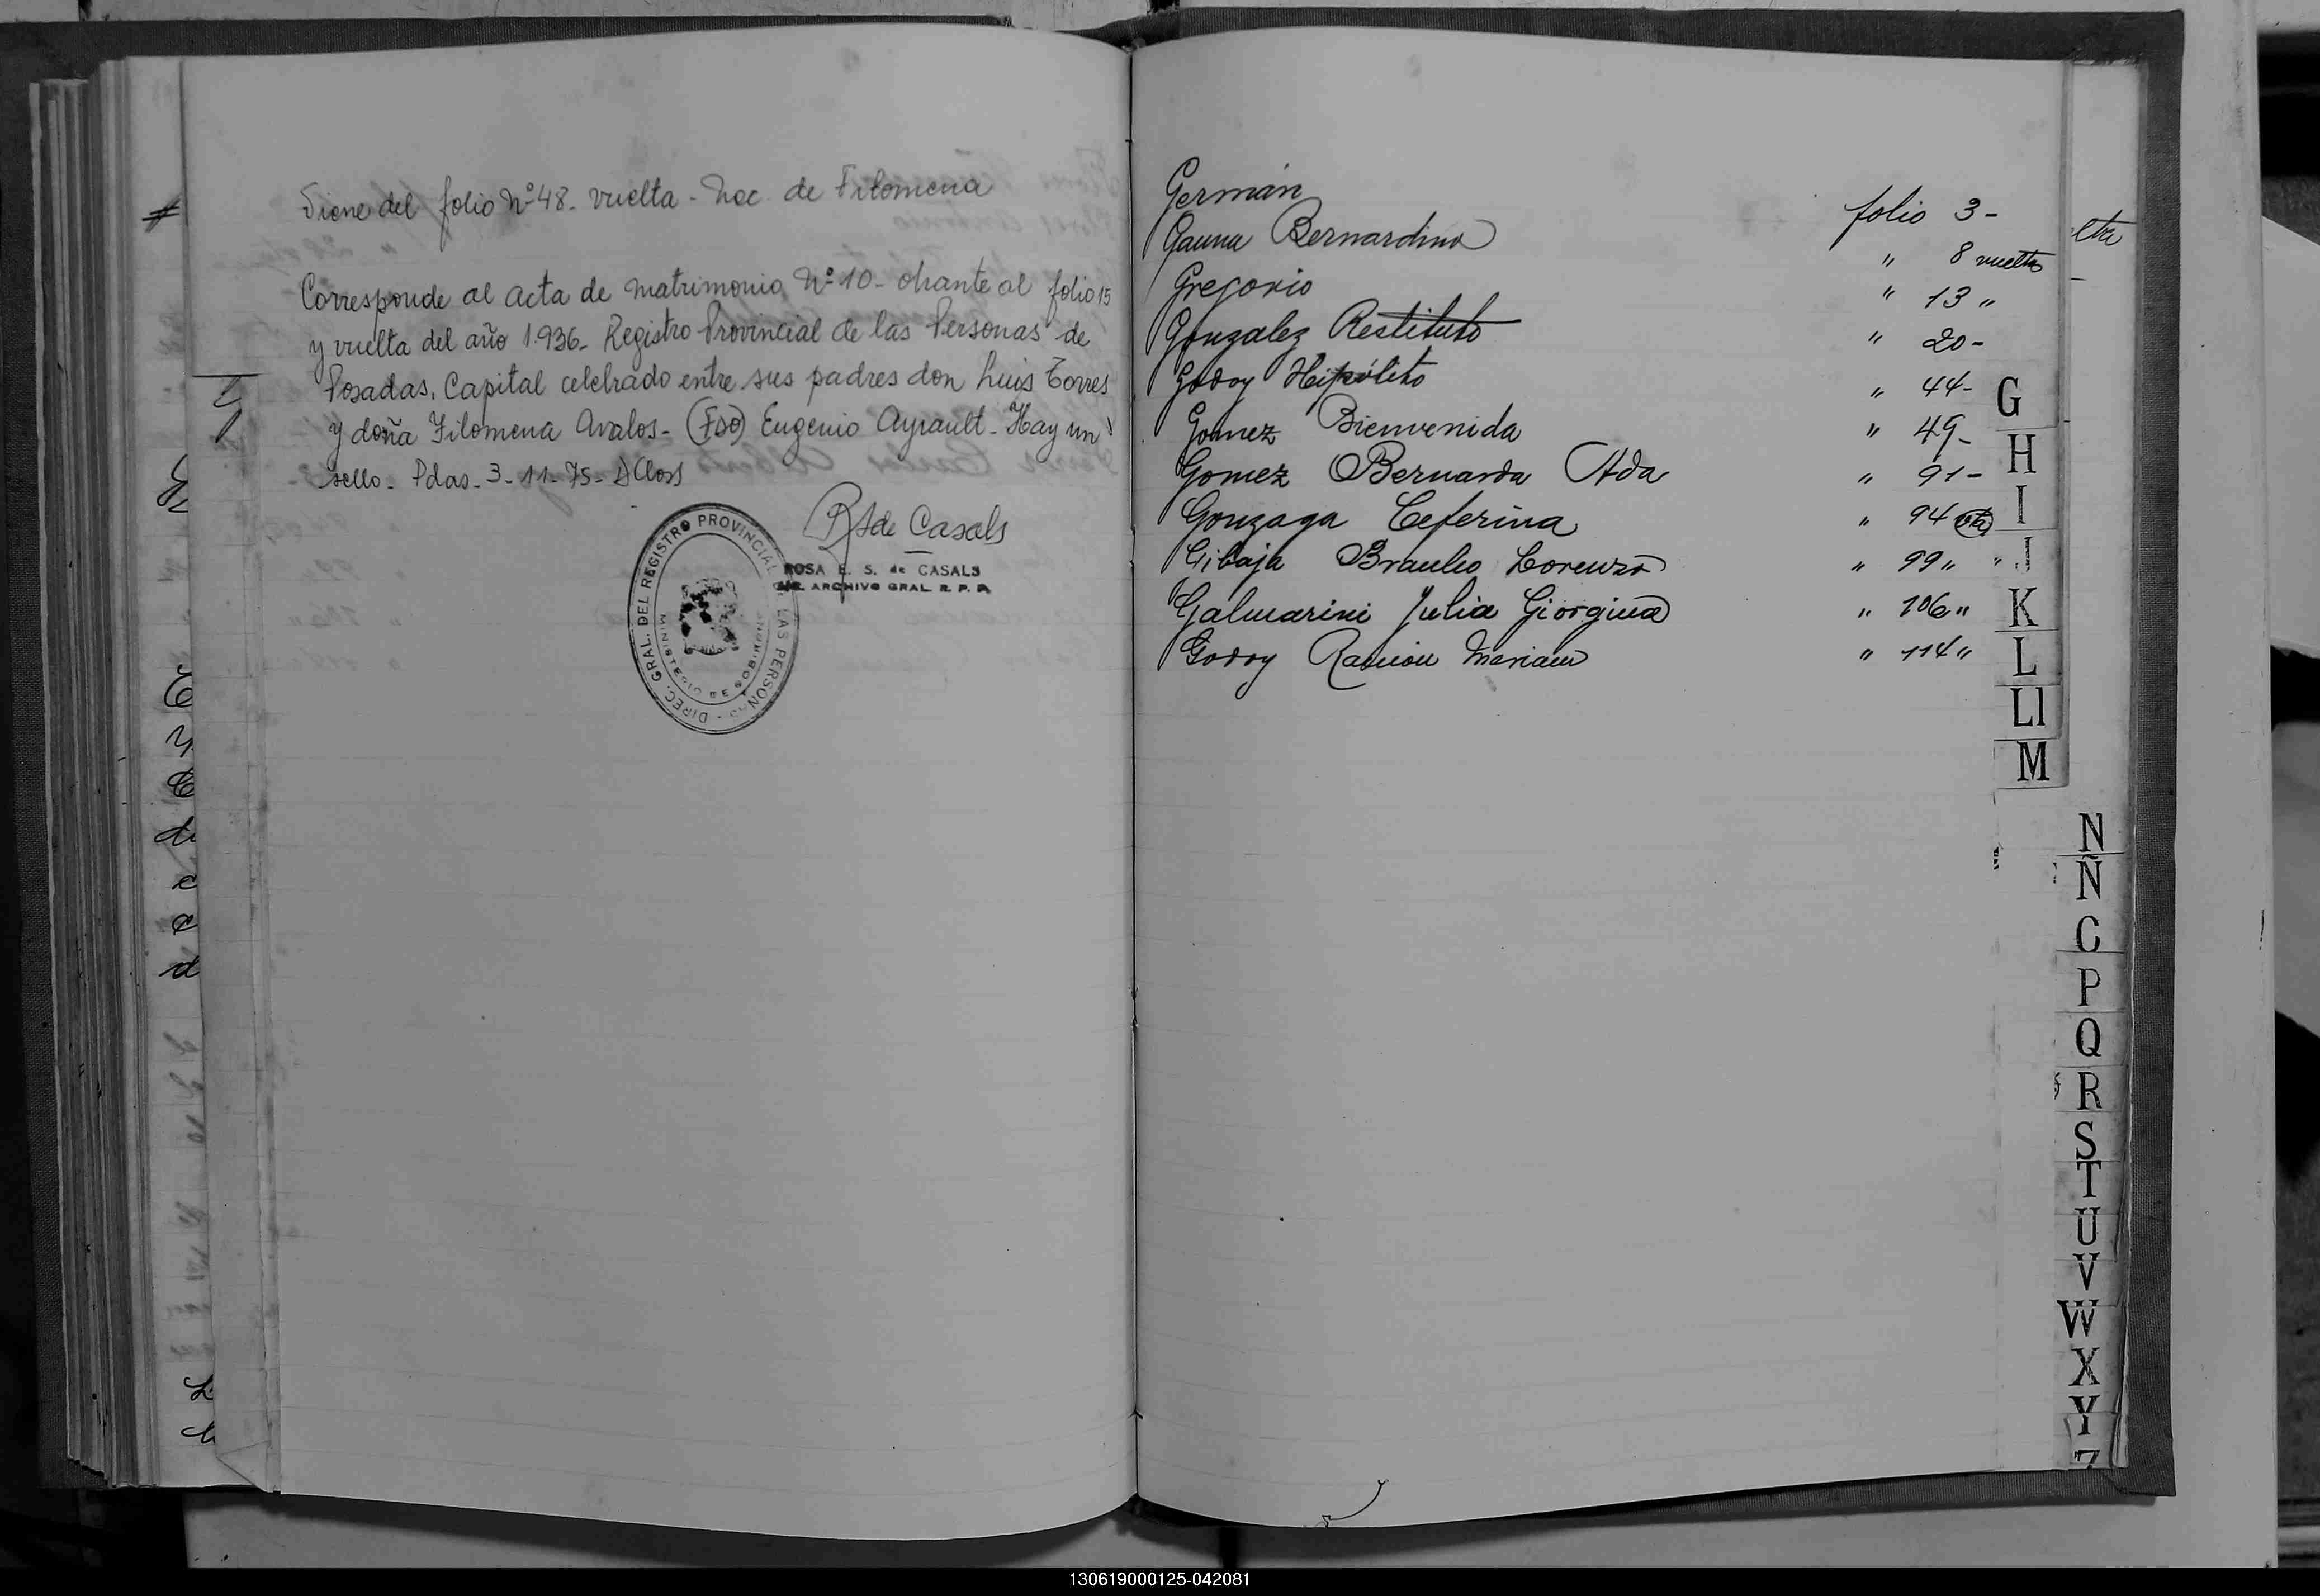 Viene del folio Nº 48- vuelta - Nac. de Filomena
Corresponde al acta de matrimonio Nº 10- obrante al folio 15
y vuelta del año 1.936- Registro Provincial de las Personas de
Posadas, Capital celebrado entre sus padres don Luis Torres
y doña Filomena Avalos- (Fdo) Eugenio Ayrault- Hay un
sello- Pdas- 3-11-75-
R S de Casals
ROSA E. S. de CASALS
ARCHIVO GRAL. R. P. P.
DIREC. GRAL. DEL REGISTRO PROVINCIAL LAS PERSONAS
MINISTERIO DE GOBIERNO
Germán folio 3-
Gauna Bernardino " 8 vuelta
Gregorio " 13 "
Gonzalez Restituto " 20-
Godoy Hipólito " 44-
Gomez Bienvenida " 49-
Gomez Bernarda Ada " 91-
Gonzaga Ceferina " 94 vta
Gibaja Braulio Lorenzo " 99 "
Galmarini Julia Giorgina " 106 "
Godoy Ramón Mariano " 114 "
G
H
I
J
K
L
Ll
M
N
Ñ
P
Q
R
S
T
U
V
W
X
Y
Z
130619000125-042081